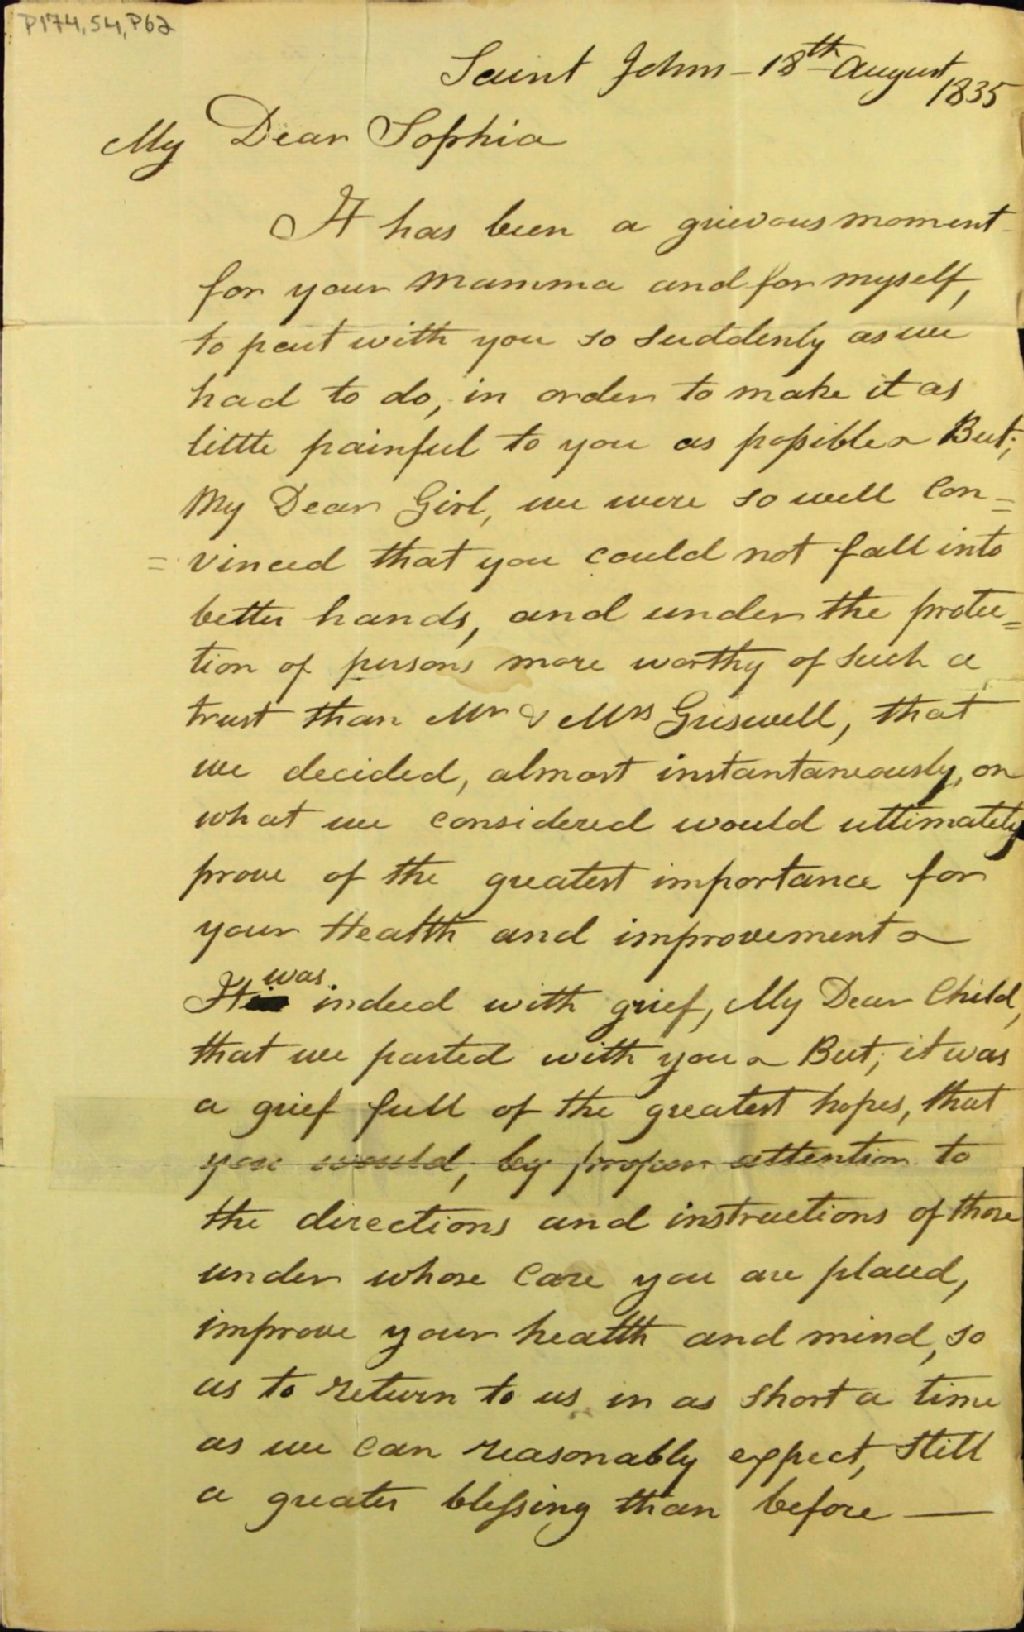 P174,54,P62
Saint John - 18th August
1835
My Dear Sophia
It has been a grievous moment
for your Mamma and for myself,
to part with you so suddenly as we
had to do, in order to make it as
little painful to you as possible ~ But;
My Dear Girl, we were so well Con=
=vinced that you could not fall into
better hands, and under the protec=
tion of persons more worthy of such a
trust than Mr & Mrs Griswell, that
we decided, almost instantaneously, on
what we considered would ultimately
prove of the greatest importance for
your Health and improvement ~
was
It indeed with grief, My Dear Child,
that we parted with you ~ But; it was
a grief full of the greatest hopes, that
you would, by proper attention to
the directions and instructions of those
under whose Care you are placed,
improve your health and mind, so
as to return to us in as short a time
as we can reasonably expect, still
a greater blessing than before —